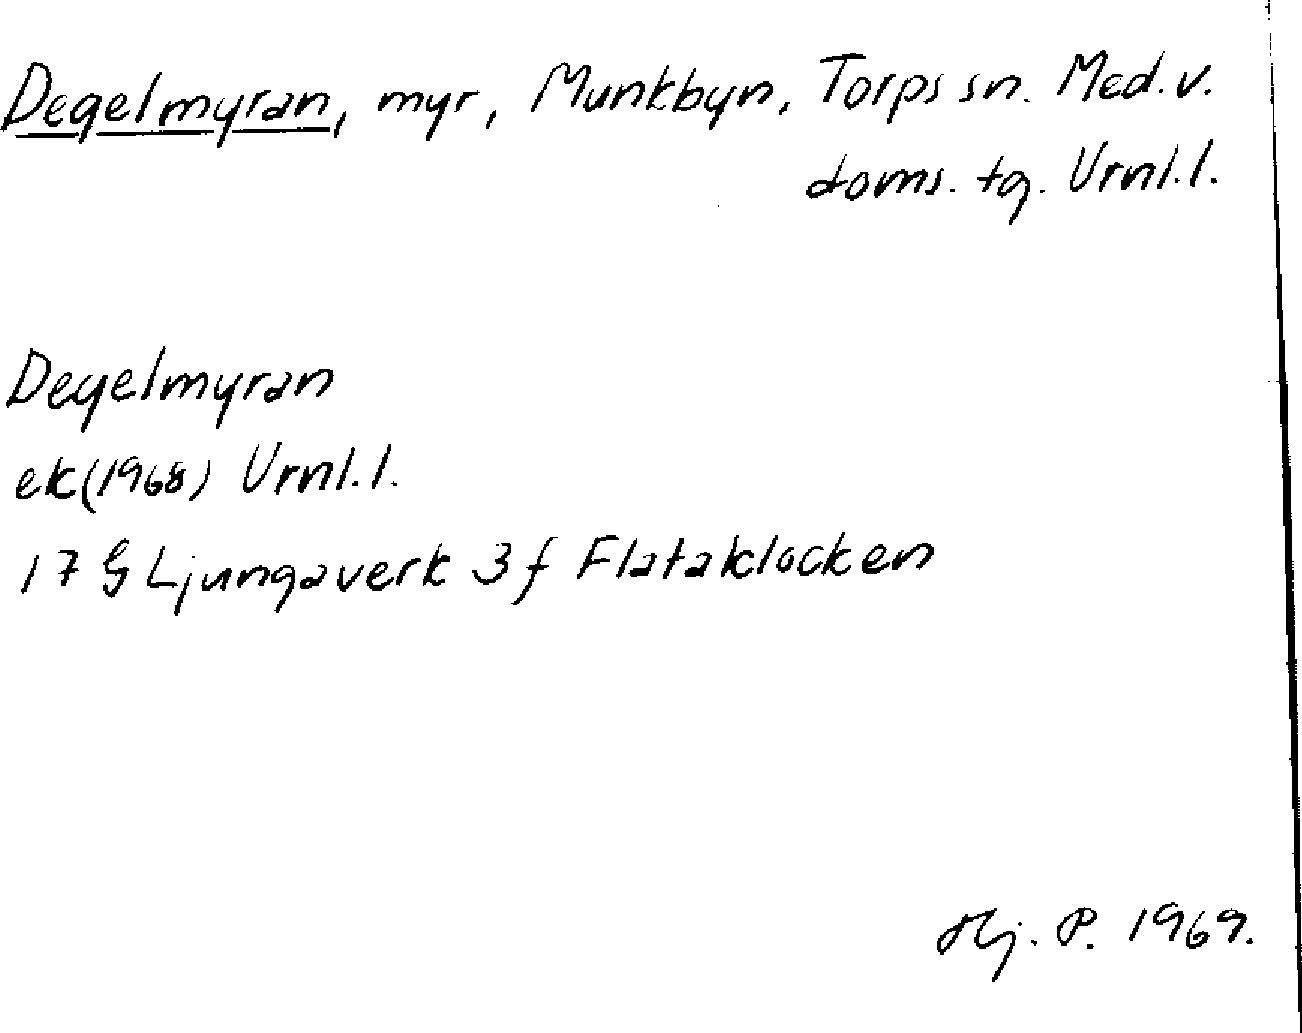 Degelmyran, myr, Munkbyn, Torps sn. Med. v.
doms. tg. Vrnl. l.
Degelmyran
ek (1968) Vrnl. l.
17 G Ljungaverk 3 f Flataklocken
Hj. P. 1969.